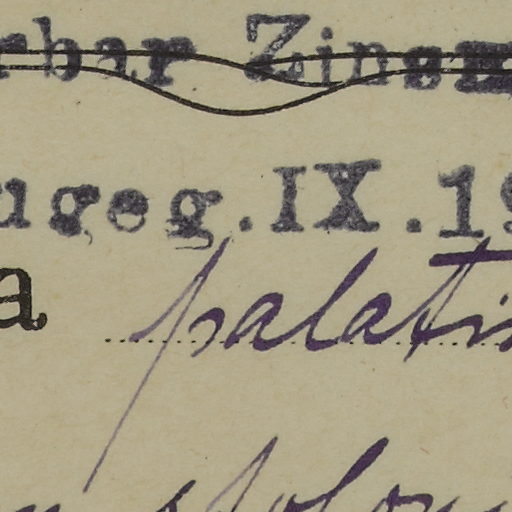 rbar Zinsm
ugeg.IX.19
a palatin